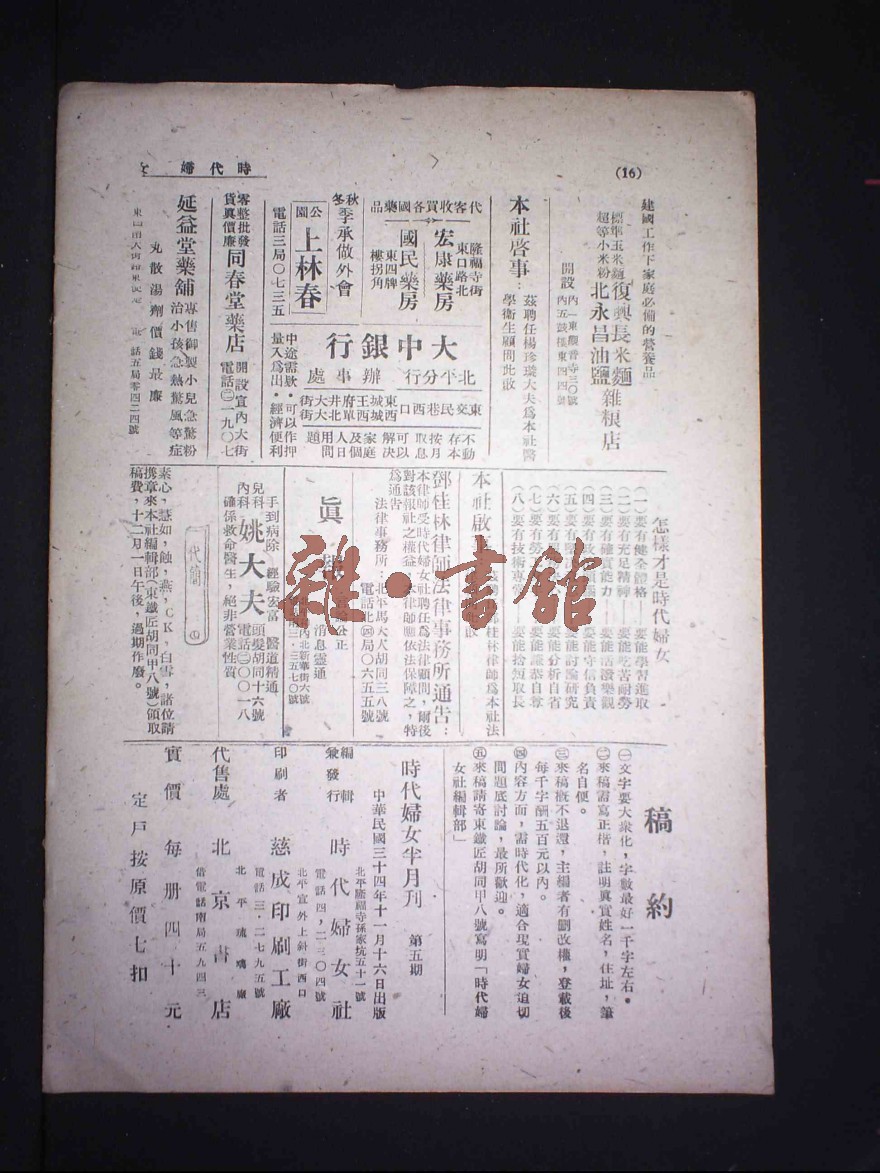 (16)
時代婦女
建國工作下家庭必備的營養品
標準玉米麵
超等小米粉
復興長米麵
北永昌油鹽
雜粮店
開設
內一東觀音寺三〇號
內五鼓樓東四四號
本社啓事：
茲聘任楊珍璣大夫爲本社醫
學衛生顧問此啟
代客收買各國藥品
隆福寺街
東口路北
宏康藥房
國民藥房
東四牌
樓拐角
秋冬季承做外會
公園
上林春
電話三局〇七三五
大中銀行
北平分行辦事處
東交民巷西口
東城王府井大街
西城西單大街
不動存本按月取息可以解決家庭及個人日用問題
中途需款・可以作押
量入爲出・經濟便利
零整批發
貨眞價廉
同春堂藥店
開設宣內大街
電話㈡一九〇七
延益堂藥舖
專售御製小兒急驚粉
治小孩急熱驚風等症
丸散湯劑價錢最廉
話五局零四二四號
怎樣才是時代婦女
（一）要有健全體格——要能學習進取
（二）要有充足精神——要能吃苦耐勞
（三）要有確實能力——要能活潑樂觀
（四）要
要能守信負責
（五）要
要能討論研究
（六）要
要能分析自省
（七）要有勞
要能謙恭自尊
（八）要有技術專
要能捨短取長
本社啟事
鄧桂林律師爲本社法
鄧桂林律師法律事務所通告：
本律師受時代婦女社聘任爲法律顧問，爾後
對該報社之權益，本律師應依法保障之，特
爲通告
法律事務所：北平馬大人胡同三八號
電話北㈣局〇六五五號
眞報
言論公正
消息靈通
內北新華街六號
三・三五七〇號
手到病除　經驗宏富　醫道精通
兒科
內科
姚大夫
頭髮胡同十六號
電話㈡〇〇一八
確係救命醫生　絕非營業性質
代簡
素心，慧如，蝕，燕，CK，白雪，諸位請
携章來本社編輯部（東鐵匠胡同甲八號）領取
稿費，十二月一日午後，過期作廢。
稿約
㈠文字要大衆化，字數最好一千字左右。
㈡來稿需寫正楷，註明眞實姓名，住址，筆
名自便。
㈢來稿槪不退還，主編者有刪改權，登載後
每千字酬五百元以內。
㈣內容方面，需時代化，適合現實婦女迫切
問題底討論，最所歡迎。
㈤來稿請寄東鐵匠胡同甲八號寫明「時代婦
女社編輯部」
時代婦女半月刊　第五期
中華民國三十四年十一月十六日出版
編輯
兼發行
時代婦女社
北平隆福寺孫家坑五十一號
電話四・二三〇四號
印刷者
慈成印刷工廠
北平宣外上斜街西口
電話三・二七九五號
代售處
北京書店
北平琉璃廠
借電話南局五九四三
實價　每册四十元
定戶按原價七扣
雜・書館